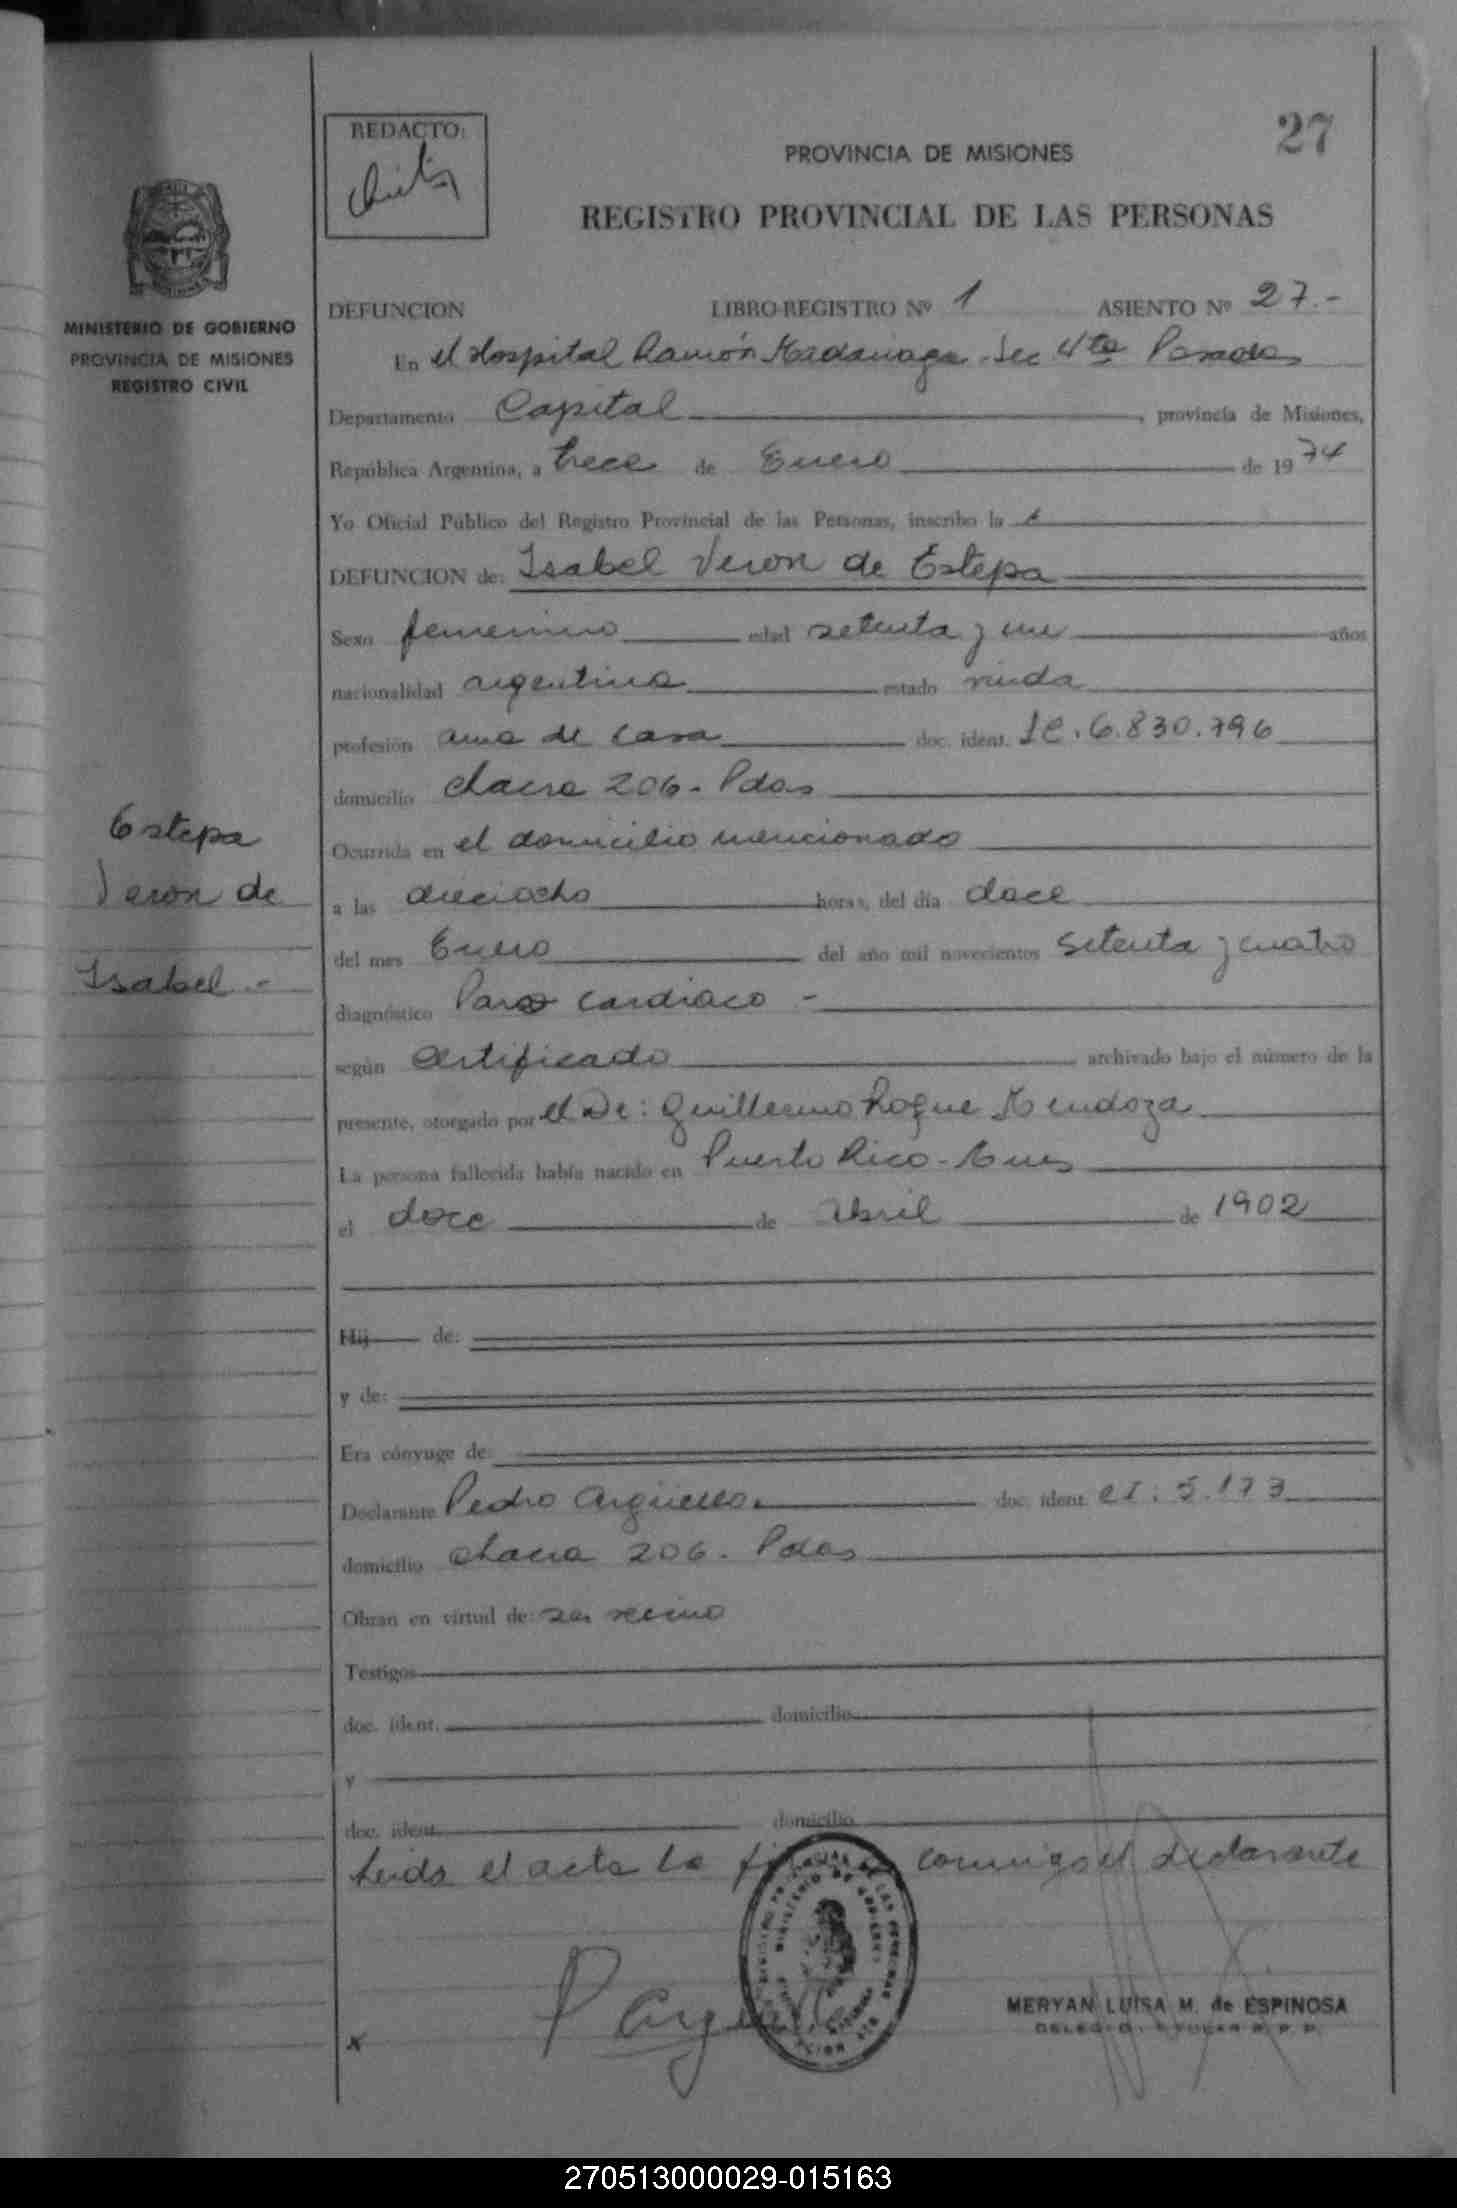 27
REDACTO:
PROVINCIA DE MISIONES
REGISTRO PROVINCIAL DE LAS PERSONAS
MINISTERIO DE GOBIERNO
PROVINCIA DE MISIONES
REGISTRO CIVIL
DEFUNCION LIBRO-REGISTRO Nº 1 ASIENTO Nº 27.-
En el Hospital Ramón Madariaga - Sec 4ta Posadas
Departamento Capital, provincia de Misiones,
República Argentina, a trece de Enero de 1974
Yo Oficial Público del Registro Provincial de las Personas, inscribo la
DEFUNCION de: Isabel Veron de Estepa
Sexo femenino edad setenta y un años
nacionalidad argentina estado viuda
profesión ama de casa doc. ident. LC. 6.830.796
domicilio chacra 206 - Pdas
Ocurrida en el domicilio mencionado
a las dieciocho horas, del día doce
del mes Enero del año mil novecientos setenta y cuatro
diagnóstico Paro cardiaco -
según certificado archivado bajo el número de la
presente, otorgado por el Dr: Guillermo Roque Mendoza
La persona fallecida había nacido en Puerto Rico - Mnes
el doce de Abril de 1902
Hij de:
y de:
Era cónyuge de:
Declarante Pedro Argüello. doc. ident. CI: 5.173
domicilio chacra 206. Pdas
Obran en virtud de: ser vecino
Testigos
doc. ident. domicilio
y
doc. ident. domicilio
Leida el acta la conmigo el declarante
Estepa
Veron de
Isabel -
MERYAN LUISA M. de ESPINOSA
x
270513000029-015163